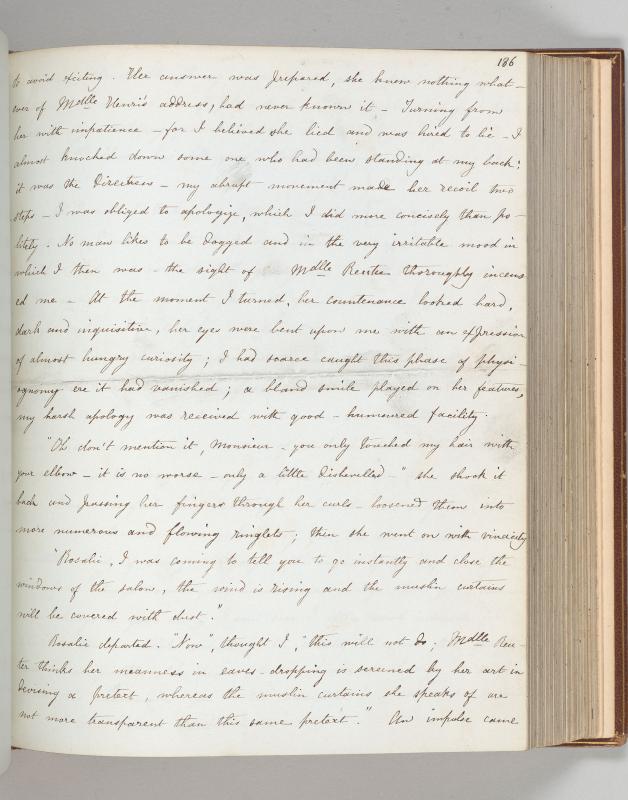 186
to avoid exciting. The answer was prepared, she knew nothing what-
ever of Mdlle Henri's address, had never known it - Turning from
her with impatience - for I believed she lied and was hired to lie - I
almost knocked down some one who had been standing at my back;
it was the Directress - my abrupt movement made her recoil two
steps - I was obliged to apologize, which I did more concisely than po-
litely. No man likes to be dogged and in the very irritable mood in
which I then was - the sight of Mdlle Reuter thoroughly incens
ed me - At the moment I turned, her countenance looked hard,
dark and inquisitive, her eyes were bent upon me with an expression
of almost hungry curiosity; I had scarce caught this phase of physi-
ognomy ere it had vanished; a bland smile played on her features,
my harsh apology was received with good-humoured facility.
"Oh don't mention it, Monsieur - you only touched my hair with
your elbow - it is no worse - only a little dishevelled -" she shook it
back and passing her fingers through her curls - loosened them into
more numerous and flowing ringlets; then she went on with vivacity
"Rosalie, I was coming to tell you to go instantly and close the
windows of the salon, the wind is rising and the muslin curtains
will be covered with dust."
Rosalie departed. "Now", thought I, "this will not do; Mdlle Reu-
ter thinks her meanness in eaves-dropping is screened by her art in
devising a pretext, whereas the muslin curtains she speaks of are
not more transparent than this same pretext." An impulse came